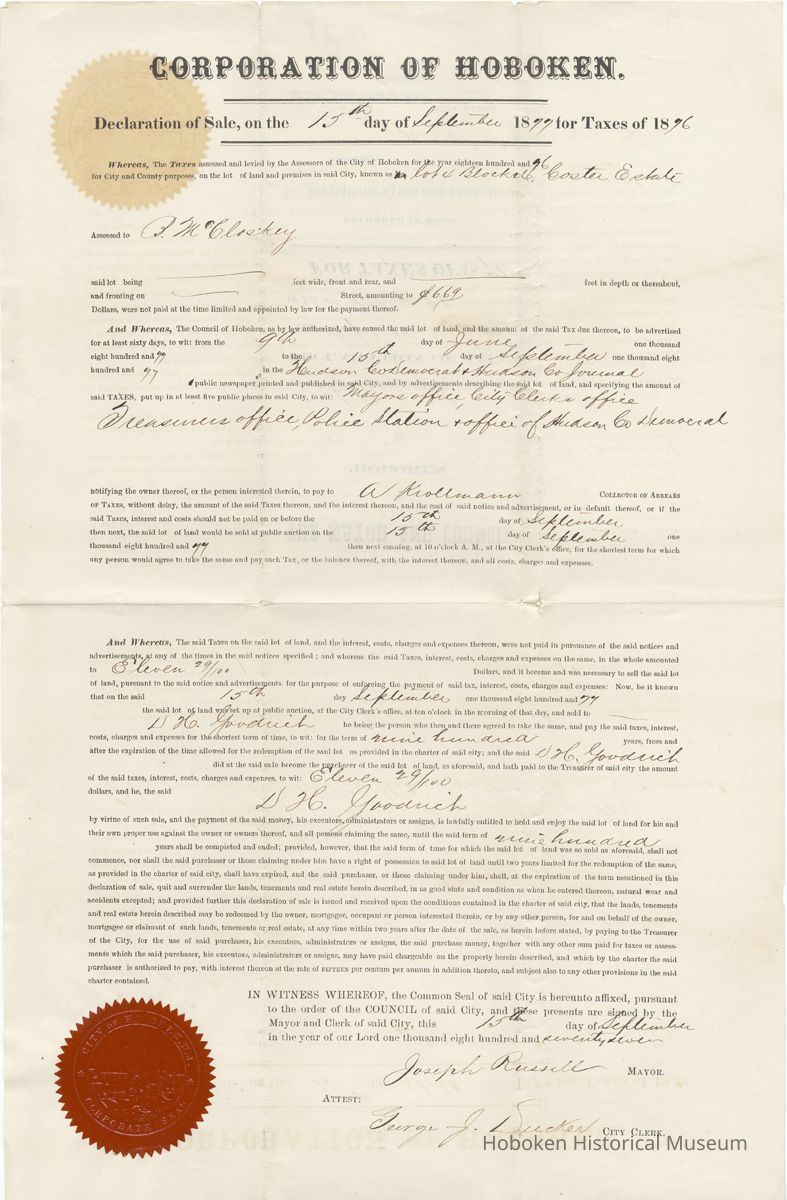 CORPORATION OF HOBOKEN.
Declaration of Sale, on the 15th day of September 1877 for Taxes of 1876
Whereas, The Taxes assessed and levied by the Assessors of the City of Hoboken for the year eighteen hundred and 76
for City and County purposes, on the lot of land and premises in said City, known as lot 4 Block Coster Estate
Assessed to P. McCloskey
said lot being feet wide, front and rear, and feet in depth or thereabout,
and fronting on Street, amounting to $6.69
Dollars, were not paid at the time limited and appointed by law for the payment thereof.
And Whereas, The Council of Hoboken, as by law authorized, have caused the said lot of land, and the amount of the said Tax due thereon, to be advertised
for at least sixty days, to wit: from the 9th day of June one thousand
eight hundred and 77 to the 15th day of September one thousand eight
hundred and 77 in the Hudson Co Democrat & Hudson Co Journal
public newspaper printed and published in said City, and by advertisements describing the said lot of land, and specifying the amount of
said TAXES, put up in at least five public places in said City, to wit: Mayors office, City Clerks office
Treasurers office, Police Station & office of Hudson Co Democrat
notifying the owner thereof, or the person interested therein, to pay to A Krollmann COLLECTOR OF ARREARS
OF TAXES, without delay, the amount of the said Taxes and thereon, and the interest thereon, and the cost of said notice and advertisement, or in default thereof, or if the
said Taxes, interest and costs should not be paid on or before the 15th day of September
then next, the said lot of land would be sold at public auction on the 15th day of September one
thousand eight hundred and 77 then next ensuing, at 10 o'clock A. M., at the City Clerk's office, for the shortest term for which
any person would agree to take the same and pay such Tax, or the balance thereof, with the interest thereon, and all costs, charges and expenses.
And Whereas, The said Taxes on the said lot of land, and the interest, costs, charges and expenses thereon, were not paid in pursuance of the said notices and
advertisements, at any of the times in the said notices specified; and whereas the said Taxes, interest, costs, charges and expenses on the same, in the whole amounted
to Eleven 29/100 Dollars, and it became and was necessary to sell the said lot
of land, pursuant to the said notice and advertisements, for the purpose of enforcing the payment of said tax, interest, costs, charges and expenses: Now, be it known
that on the said 15th day September one thousand eight hundred and 77
the said lot of land was set up at public auction, at the City Clerk's office, at ten o'clock in the morning of that day, and sold to
D H. Goodrich he being the person who then and there agreed to take the same, and pay the said taxes, interest,
costs, charges and expenses for the shortest term of time, to wit: for the term of nine hundred years, from and
after the expiration of the time allowed for the redemption of the said lot as provided in the charter of said city; and the said D H. Goodrich
did at the said sale become the purchaser of the said lot of land, as aforesaid, and hath paid to the Treasurer of said city the amount
of the said taxes, interest, costs, charges and expenses, to wit: Eleven 29/100
dollars, and he, the said
D H. Goodrich
by virtue of such sale, and the payment of the said money, his executors, administrators or assigns, is lawfully entitled to hold and enjoy the said lot of land for his and
their own proper use against the owner or owners thereof, and all persons claiming the same, until the said term of nine hundred
years shall be completed and ended; provided, however, that the said term of time for which the said lot of land was so sold as aforesaid, shall not
commence, nor shall the said purchaser or those claiming under him have a right of possession to said lot of land until two years limited for the redemption of the same,
as provided in the charter of said city, shall have expired, and the said purchaser, or those claiming under him, shall, at the expiration of the term mentioned in this
declaration of sale, quit and surrender the lands, tenements and real estate herein described, in as good state and condition as when he entered thereon, natural wear and
accidents excepted; and provided further this declaration of sale is issued and received upon the conditions contained in the charter of said city, that the lands, tenements
and real estate herein described may be redeemed by the owner, mortgagee, occupant or person interested therein, or by any other person, for and on behalf of the owner,
mortgagee or claimant of such lands, tenements or real estate, at any time within two years after the date of the sale, as herein before stated, by paying to the Treasurer
of the City, for the use of said purchaser, his executors, administrators or assigns, the said purchase money, together with any other sum paid for taxes or assess-
ments which the said purchaser, his executors, administrators or assigns, may have paid chargeable on the property herein described, and which by the charter the said
purchaser is authorized to pay, with interest thereon at the rate of FIFTEEN per centum per annum in addition thereto, and subject also to any other provisions in the said
charter contained.
IN WITNESS WHEREOF, the Common Seal of said City is hereunto affixed, pursuant
to the order of the COUNCIL of said City, and these presents are signed by the
Mayor and Clerk of said City, this 15th day of September
in the year of our Lord one thousand eight hundred and seventy seven
Joseph Russell MAYOR.
ATTEST:
George J. Ducker CITY CLERK.
CITY OF HOBOKEN, N.J.
CORPORATE SEAL
Hoboken Historical Museum